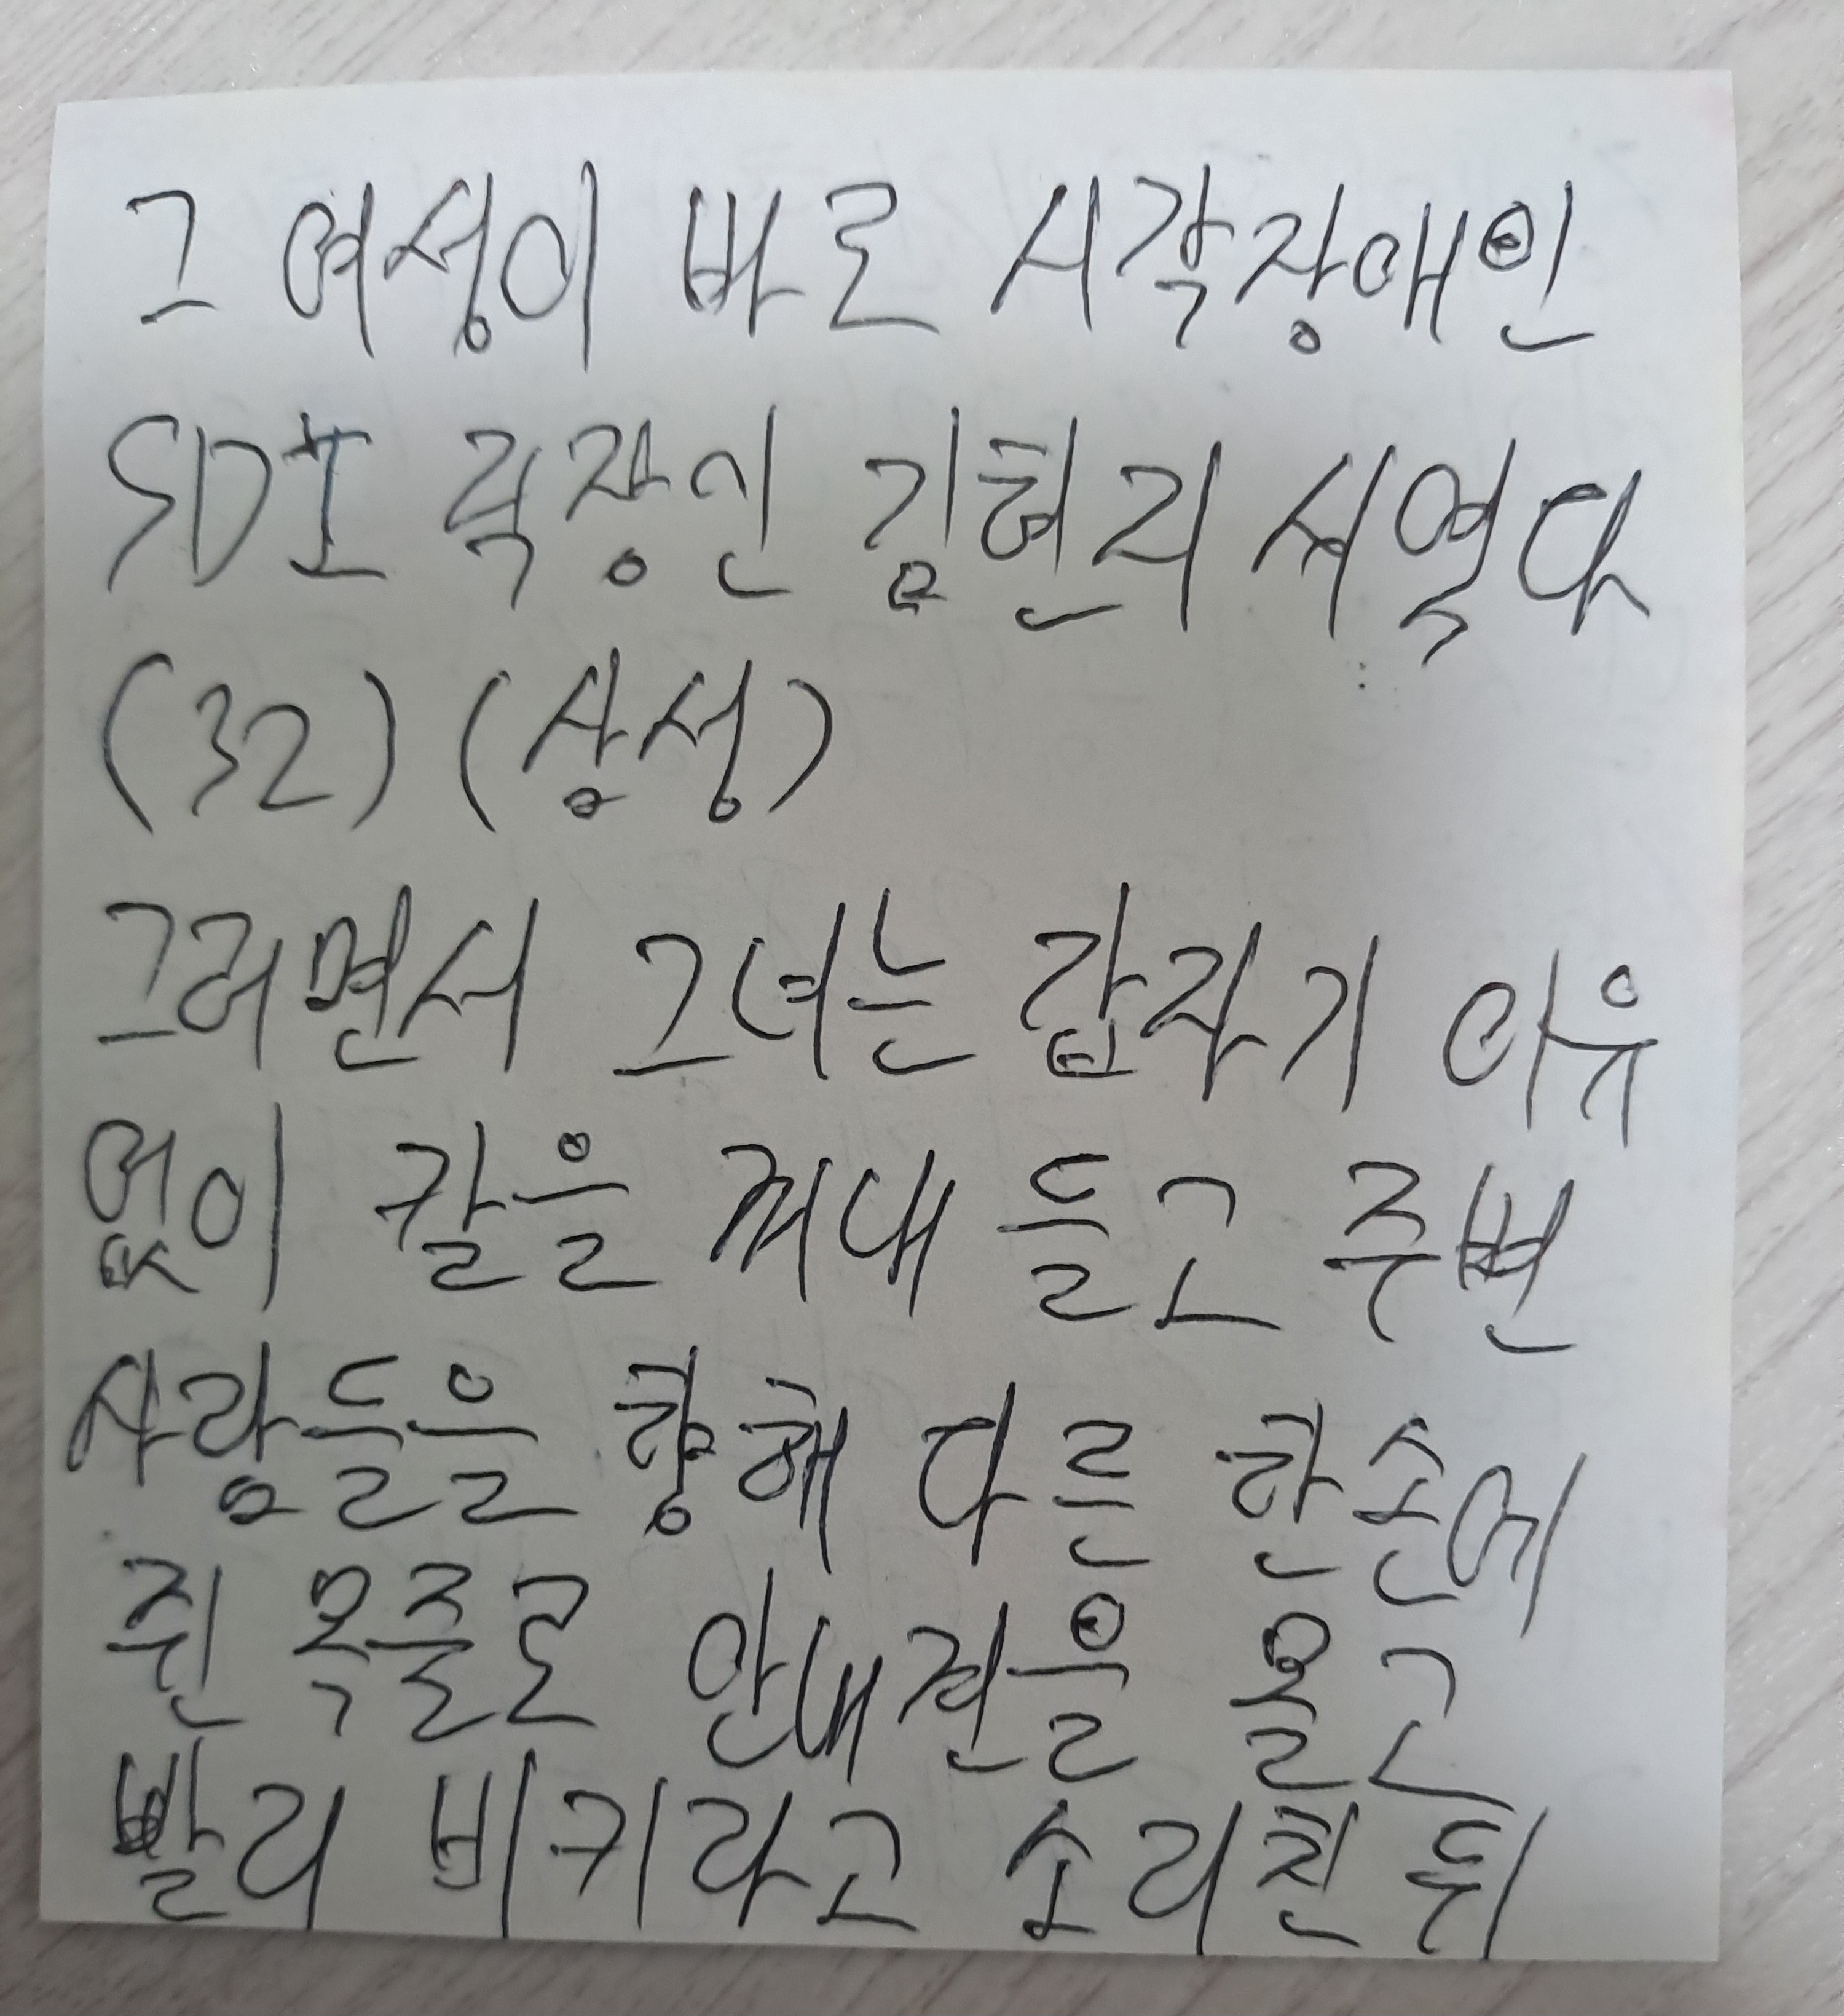 그 여성이 바로 시각장애인
SDI 직장인 김현리 서열다
(32) (삼성)
그러면서 그녀는 갑자기 이유
없이 칼을 꺼내 들고 주변
사람들을 향해 다른 한손에
쥔 목줄로 안내견을 몰고
빨리 비키라고 소리친 뒤